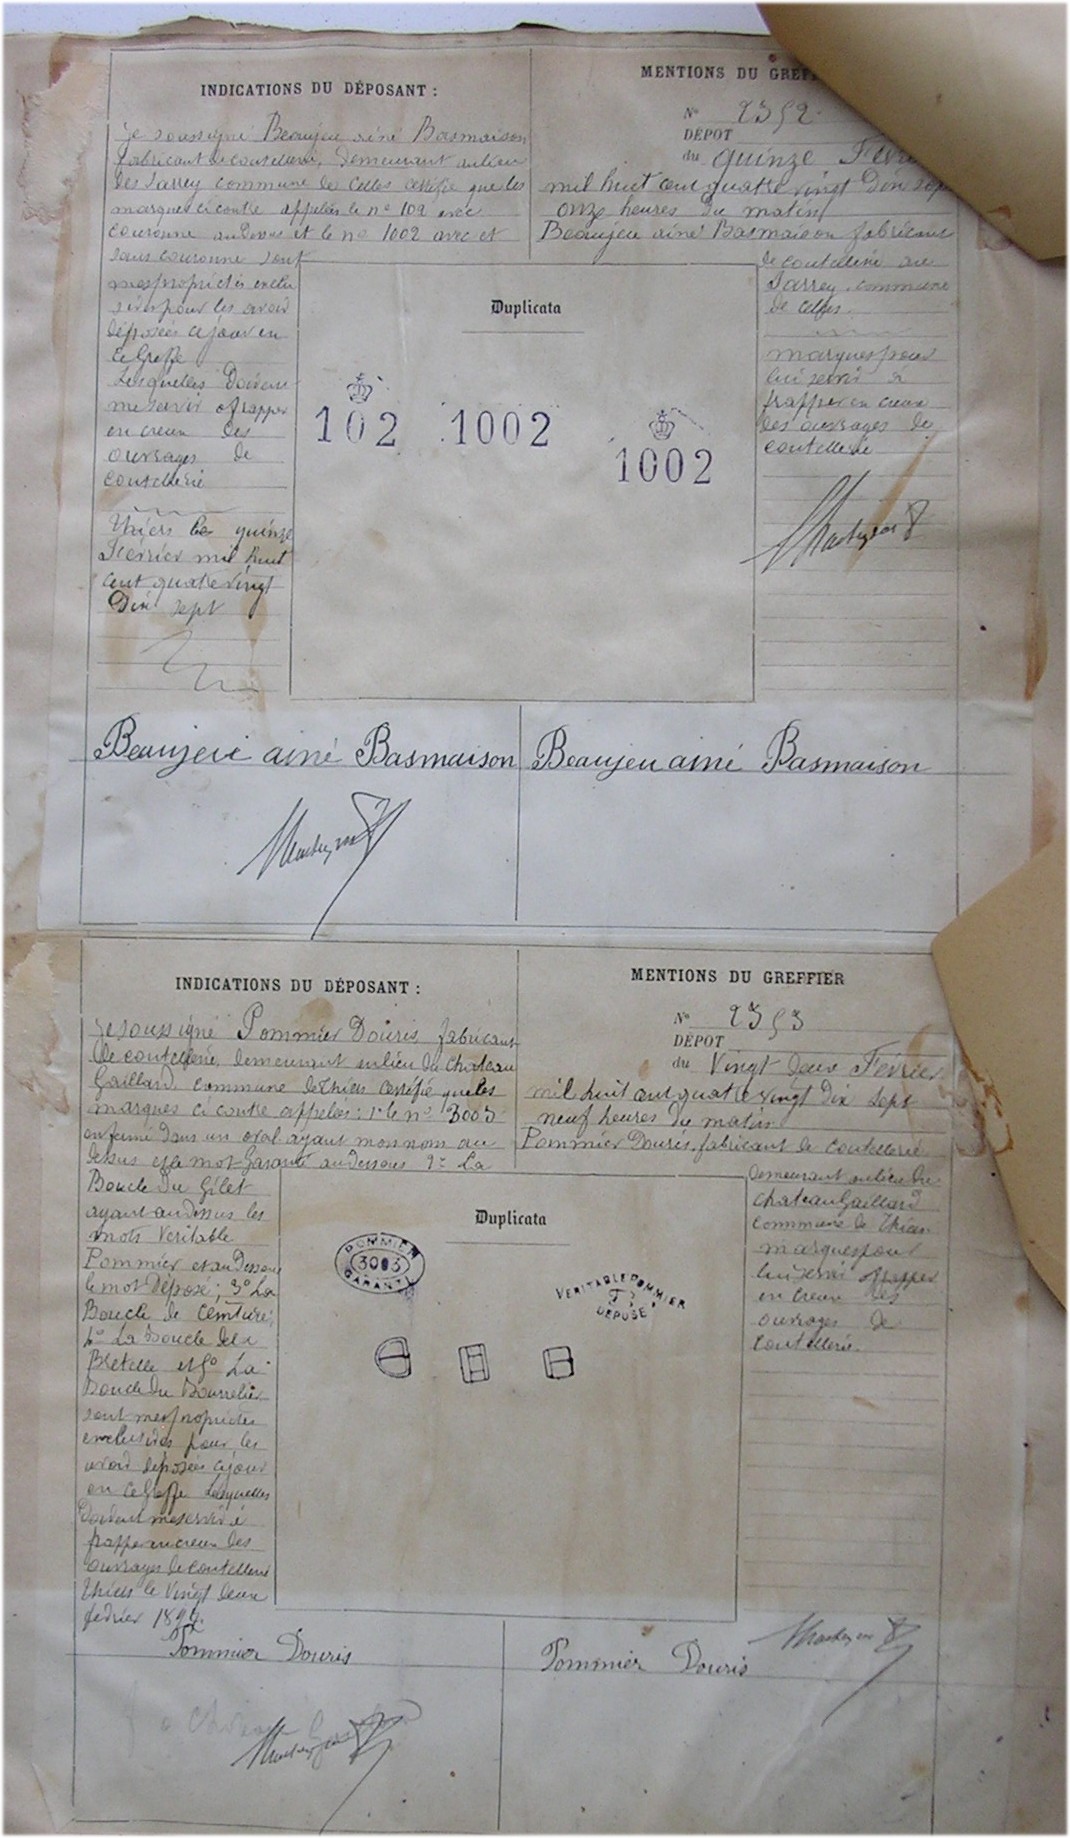 INDICATIONS DU DÉPOSANT :
je soussigné Beaujeu ainé Basmaison
fabricant de coutellerie, demeurant au lieu
des Sarrey commune de Celles certifie que les
marques ci contre appelées le n° 102 avec
couronne au dessus et le n° 1002 avec et
sans couronne sont
mes propriétés exclu
sives pour les avoir
déposées ce jour en
ce Greffe
Lesquelles doivent
me servir a frapper
en creux des
ouvrages de
coutellerie
Thiers le quinze
Février mil huit
cent quatre vingt
Dix sept
MENTIONS DU GREFF
N° 2352
DÉPOT
du quinze Févri
mil huit cent quatre vingt Dix sept
onze heures du matin
Beaujeu ainé Basmaison fabricant
de coutellerie au
Sarrey commune
de Celles
marques pour
lui servir à
frapper en creux
des ouvrages de
coutellerie
Duplicata
102 1002
1002
Beaujeu ainé Basmaison
Beaujeu ainé Basmaison
INDICATIONS DU DÉPOSANT :
je soussigné Pommier Douris fabricant
de coutellerie, demeurant au lieu du Chateau
Gaillard commune de Thiers certifie que les
marques ci contre appelées : 1° le n° 3003
enfermé dans un oval ayant mon nom au
dessus et le mot Garanti au dessous 2° La
Boucle du Gilet
ayant au dessus les
mots Veritable
Pommier et au dessous
le mot déposé ; 3° La
Boucle de Ceinture ;
4° La Boucle de la
Bretelle et 5° La
Boucle du Bourrelier
sont mes propriétés
exclusives pour les
avoir déposées ce jour
en ce Greffe Lesquelles
doivent me servir à
frapper en creux des
ouvrages de coutellerie
Thiers le vingt deux
fevrier 1897.
MENTIONS DU GREFFIER
N° 2353
DÉPOT
du Vingt deux Février
mil huit cent quatre vingt Dix sept
neuf heures du matin
Pommier Douris, fabricant de coutellerie
demeurant au lieu du
chateau Gaillard
commune de Thiers
marques pour
lui servir a frapper
en creux des
ouvrages de
coutellerie
Duplicata
POMMIER
3003
GARANTI
VERITABLE POMMIER
DÉPOSÉ
Pommier Douris
Pommier Douris